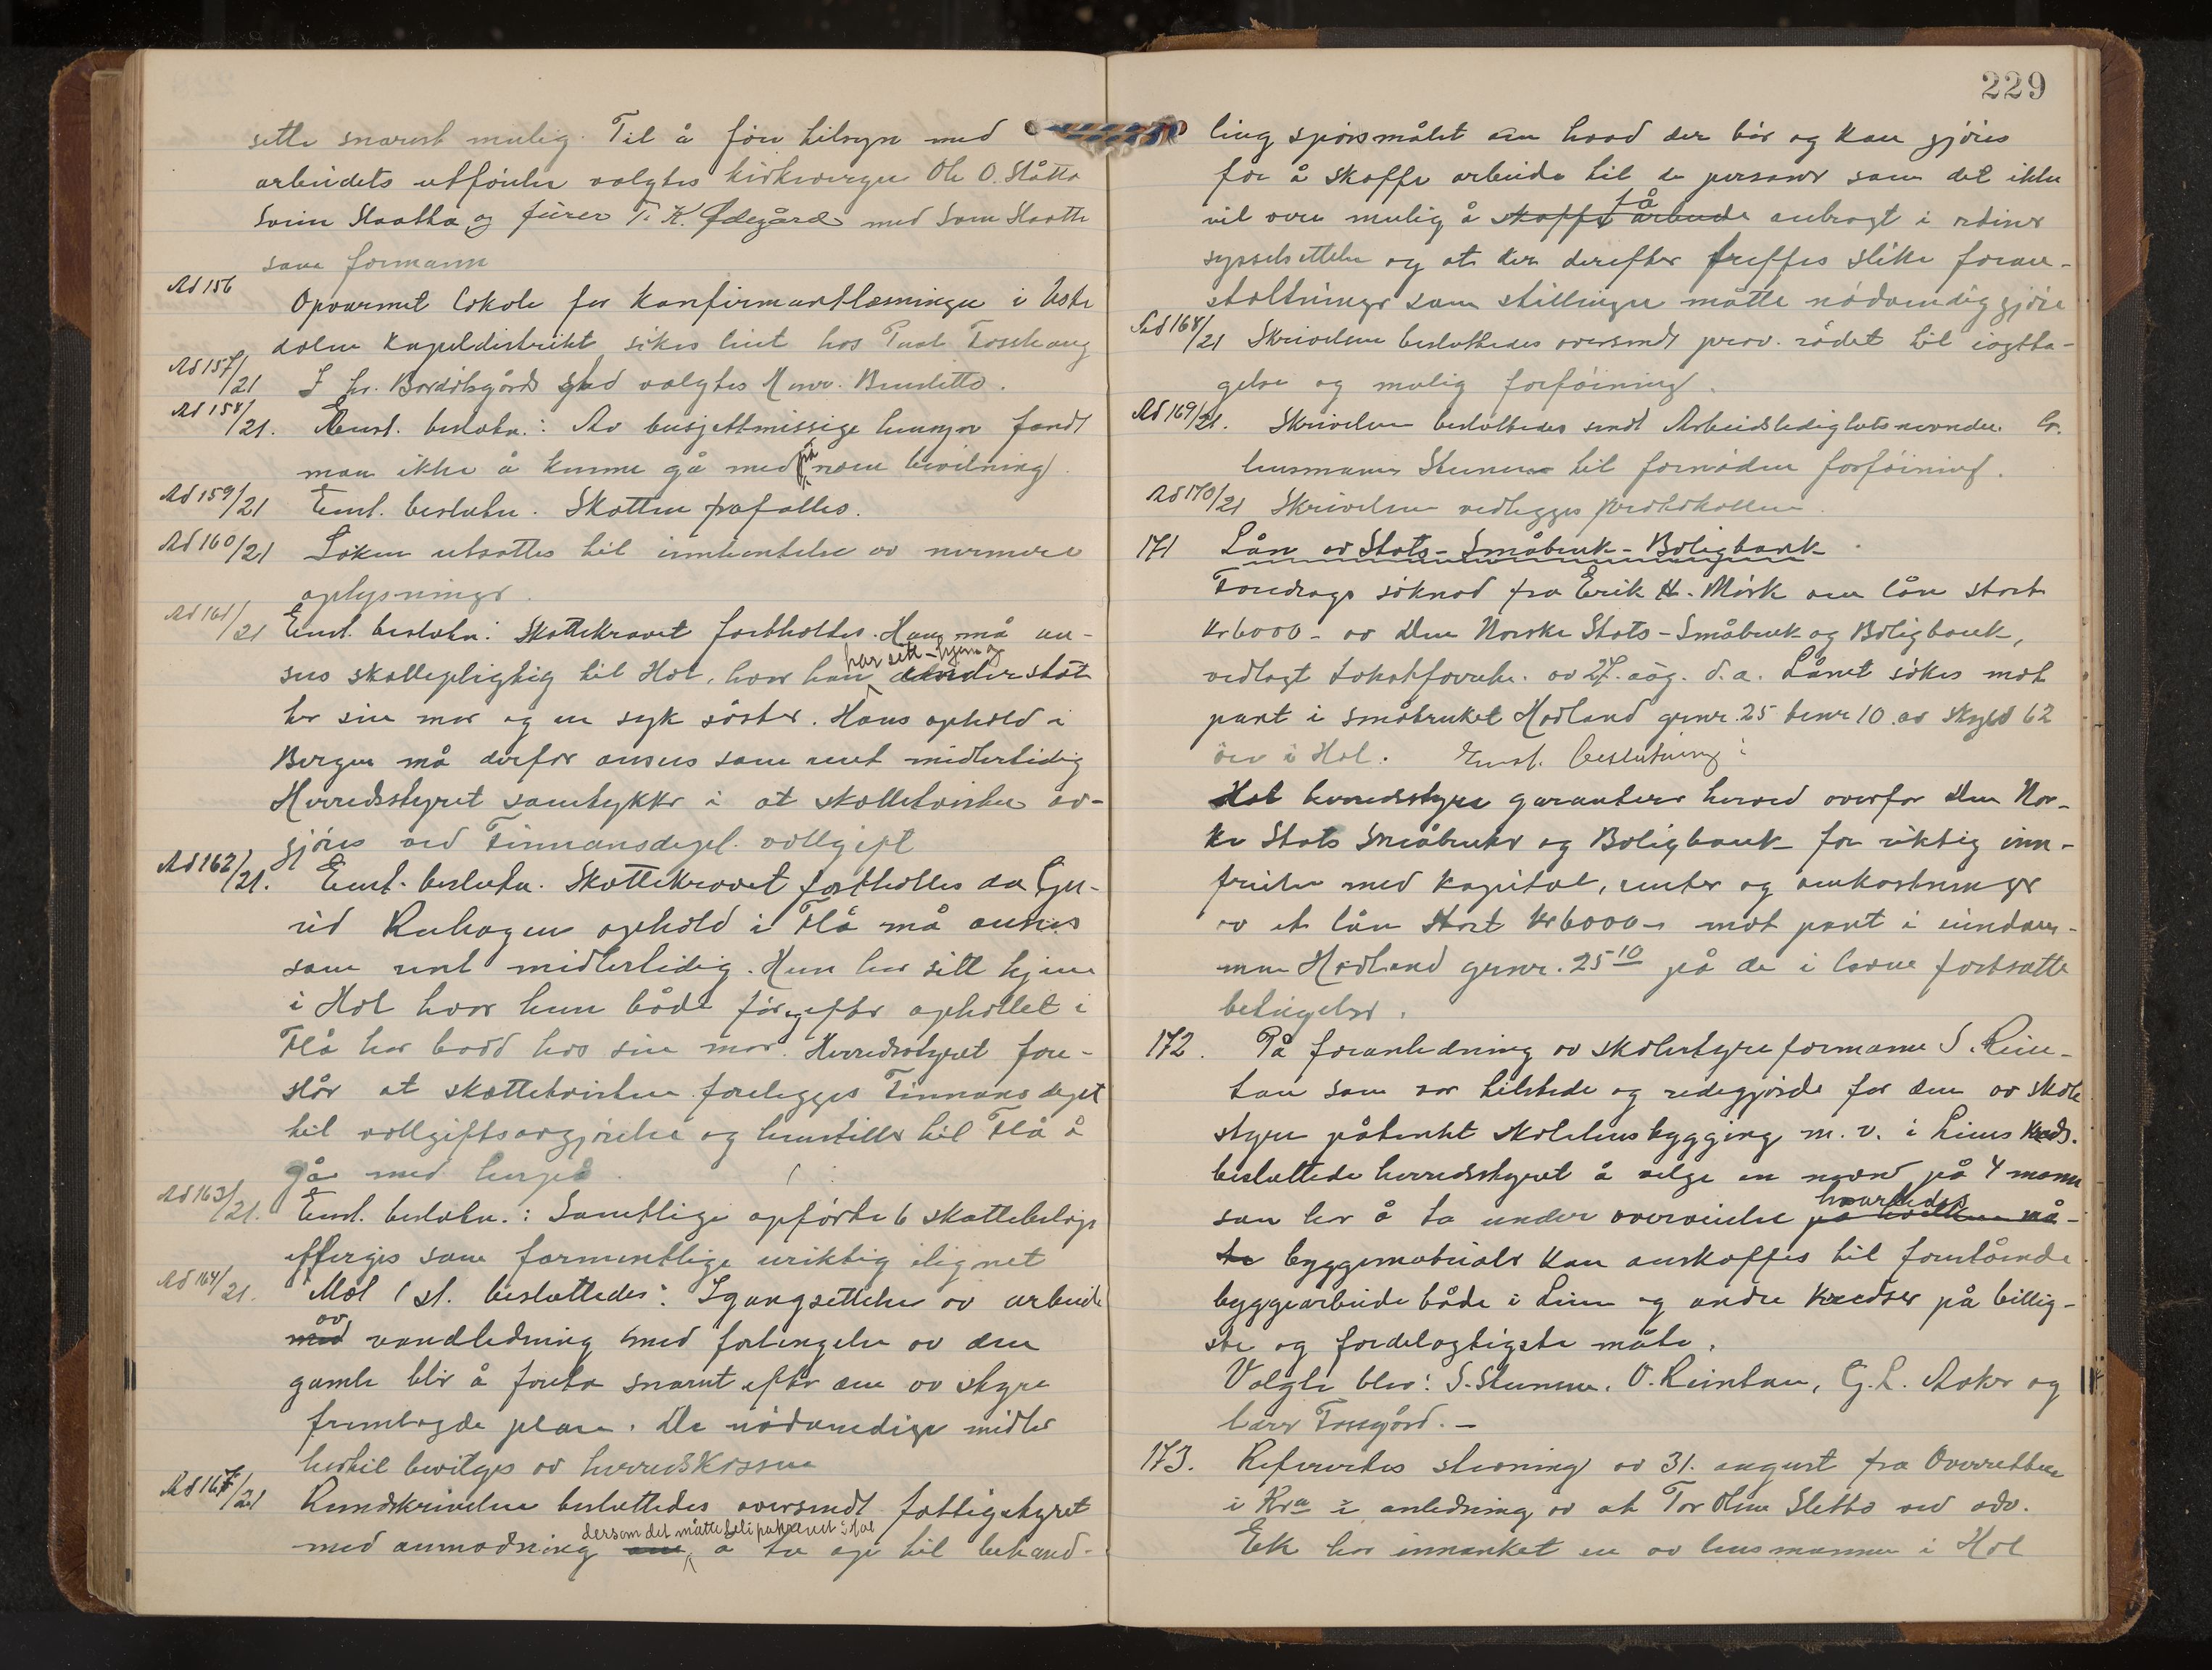 sette snarest mulig. Til å före tilsyn med
arbeidets utförelse valgtes kirkeverge Ole O. Slåtto
Svein Slaatta og fürer T. K. Ødegård med Svein Slaatta
som formann
Ad 156
Opvarmet lokale for konfirmantlæsningen i Uste
dalen kapeldistrikt sökes leiet hos Paal Tosehaug
Ad 157/21 I hr. Bordölsgårds sted valgtes Herm. Brusletto.
Ad 158/21. Enst. beslutn.: Av busjettmessige hensyn fandt
man ikke å kunne gå med på noen bevilning.
Ad 159/21 Enst. beslutn. Skatten frafalles.
Ad 160/21 Saken utsattes til innhentelse av nermere
oplysninger.
Ad 161/21 Enst. beslutn: Skattekravet fastholdes. Hans må an-
sees skattepligtig til Hol, hvor han har sitt hjem og understöt
ter sin mor og en syk söster. Hans ophold i
Bergen må derfor ansees som rent midlertidig
Herredsstyret samtykker i at skattetvisten av-
gjöres ved Finnansdepet. voldgift
Ad 162/21. Enst. beslutn. Skattekravet fastholdes da Gu-
rid Ruhagen ophold i Flå må ansees
som rent midlertidig. Hun har sitt hjem
i Hol hvor hun både för og efter opholdet i
Flå har bodd hos sin mor. Herredsstyret fore-
slår at skattetvisten forelegges Finnansdepet
til voldgiftsavgjörelse og henstiller til Flå å
gå med herpå.
Ad 163/21. Enst. beslutn.: Samtlige opförte 6 skattebelöp
eftergis som formentlige uriktig ilignet
Ad 164/21. Mot 1 st. besluttedes: Igangsettelse av arbeide
med av vandledning med forlengelse av den
gamle blir å foreta snarest efter den av styre
fremlagde plan. De nödvendige midler
hertil bevilges av herredskassen
Ad 167/21 Rundskrivelsen besluttedes oversendt fattigstyret
med anmodning om dersom det måtte bli påkrævet i Hol å ta op til behand-
229
ling spörsmålet om hvad der bör og kan gjöres
for å skaffe arbeide til de personer som det ikke
vil være mulig å skaffe arbeide få anbragt i ordinær
sysselsettelse og at der derefter treffes slike foran-
staltninger som stillingen måtte nödvendiggjöre
Ad 168/21 Skrivelsen besluttedes oversendt prov. rådet til iagtta-
gelse og mulig forföining.
Ad 169/21. Skrivelsen besluttedes sendt Arbeidsledighetsnevnden v.
lensmann Stenersen til fornöden forföining.
Ad 170/21 Skrivelsen vedlegges protokollen.
171 Lån av Stats-Småbruk-Boligbank
Foredrags söknad fra Erik H. Mörk om lån stort
kr 6000- av Den Norske Stats-Småbruk og Boligbank,
vedlagt takstforretn. av 27. aug. d.a. Lånet sökes mot
pant i småbruket Hodland grnr. 25 brnr 10 av skyld 62
öre i Hol. Enst. beslutning:
Hol herredsstyre garanterer herved overfor Den Nor-
ke Stats Småbruks og Boligbank for riktig inn-
frielse med kapital, renter og omkostninger
av et lån stort kr 6000- mot pant i eiendom-
men Hodland grnr. 25 10 på de i loven fortsatte
betingelser.
172. På foranledning av skolestyreformann S. Rein-
ton som var tilstede og redegjorde for den av skole
styre påtænkt skolehusbygging m. v. i Liens Kreds.
besluttede herredsstyret å velge en nævnd på 4 mann
som har å ta under overveielse på hvilken må- hvorledes
te byggematerialer kan anskaffes til forestående
byggearbeide både i Lien og andre kredser på billig-
ste og fordelagtigste måte.
Valgte blev: S. Stenersen, O. Reinton, G. L. Aaker og
Lars Fossgård. -
173. Refertes stevning av 31. august fra Overretten
i Kra i anledning av at Tor Olsen Sletto ved adv.
Ek har innanket en av lensmannen i Hol